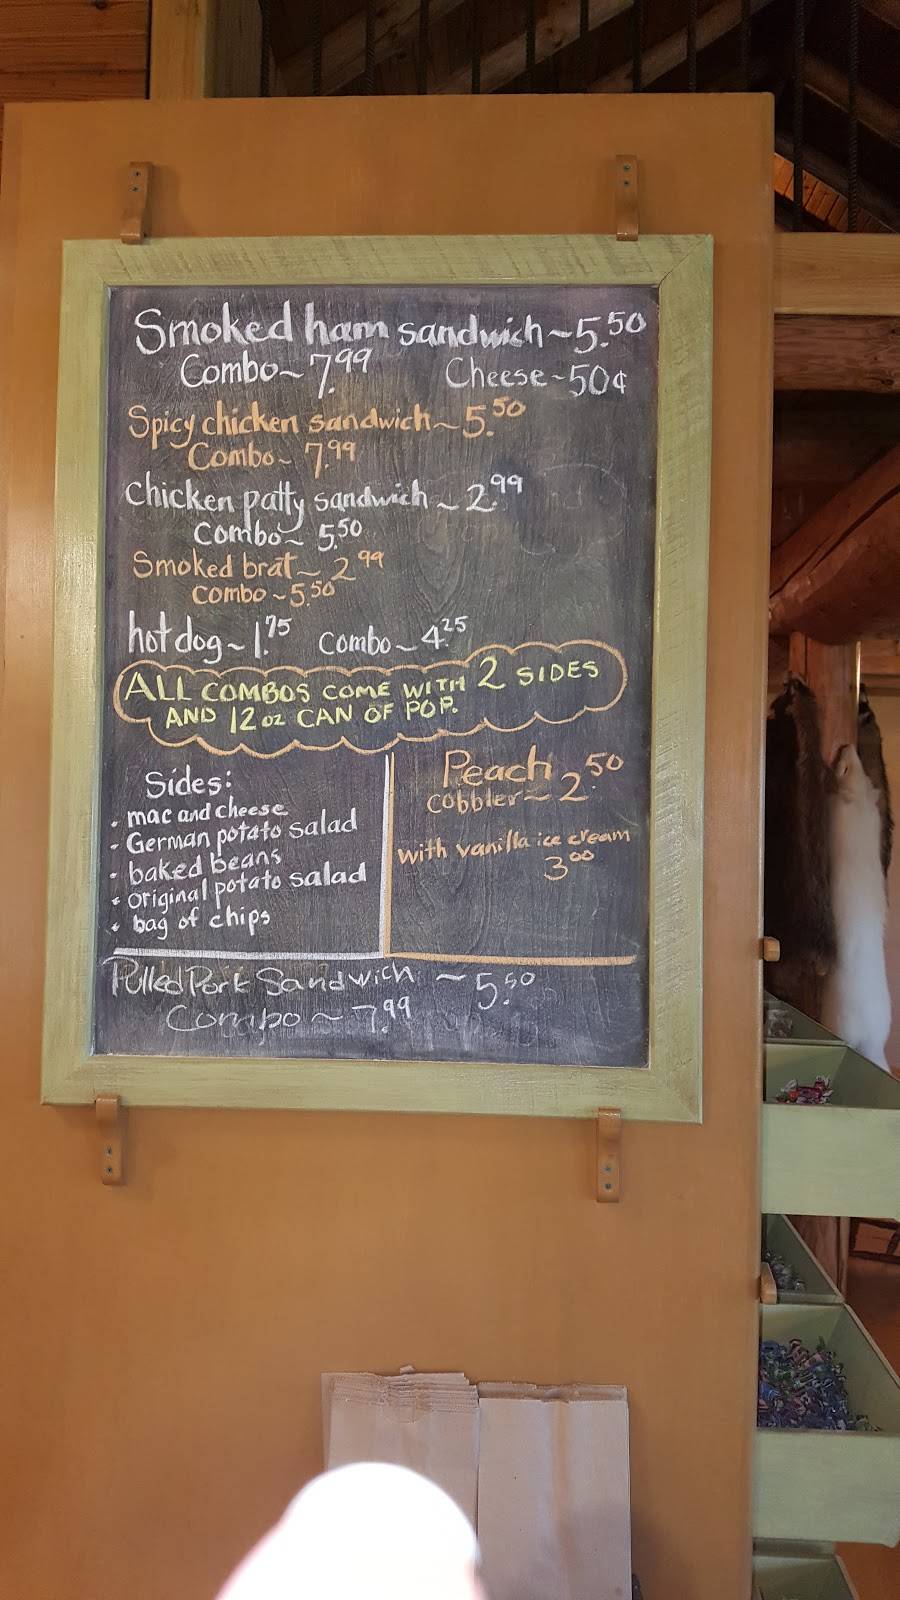 Smoked ham sandwich ~ 5.50
Combo ~ 7.99 Cheese ~ 50¢
Spicy chicken sandwich ~ 5.50
Combo ~ 7.99
Chicken patty sandwich ~ 2.99
Combo ~ 5.50
Smoked brat ~ 2.99
combo ~ 5.50
hot dog ~ 1.75 combo ~ 4.25
ALL COMBOS COME WITH 2 SIDES
AND 12 oz CAN OF POP.
Sides:
• mac and cheese
• German potato salad
• baked beans
• original potato salad
• bag of chips
Peach
cobbler ~ 2.50
with vanilla ice cream
3.00
Pulled Pork Sandwich ~ 5.50
Combo ~ 7.99